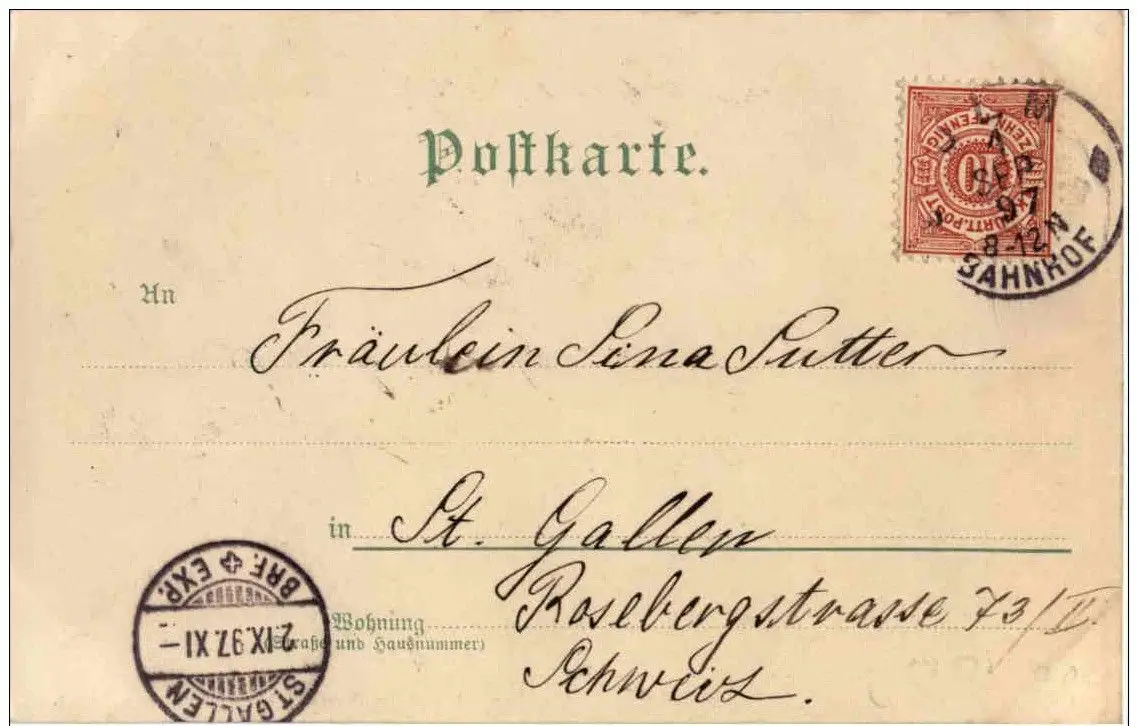 Postkarte.
ZEHN PFENNIG
10
WÜRTT. POST
ULM
1
SEP
97
8-12 N
BAHNHOF
An
Fräulein Sina Sutter
in St. Gallen
Wohnung Rosebergstrasse 73/II
(Straße und Hausnummer)
Schweiz.
BRF. EXP.
2.IX.97.XI-
ST. GALLEN